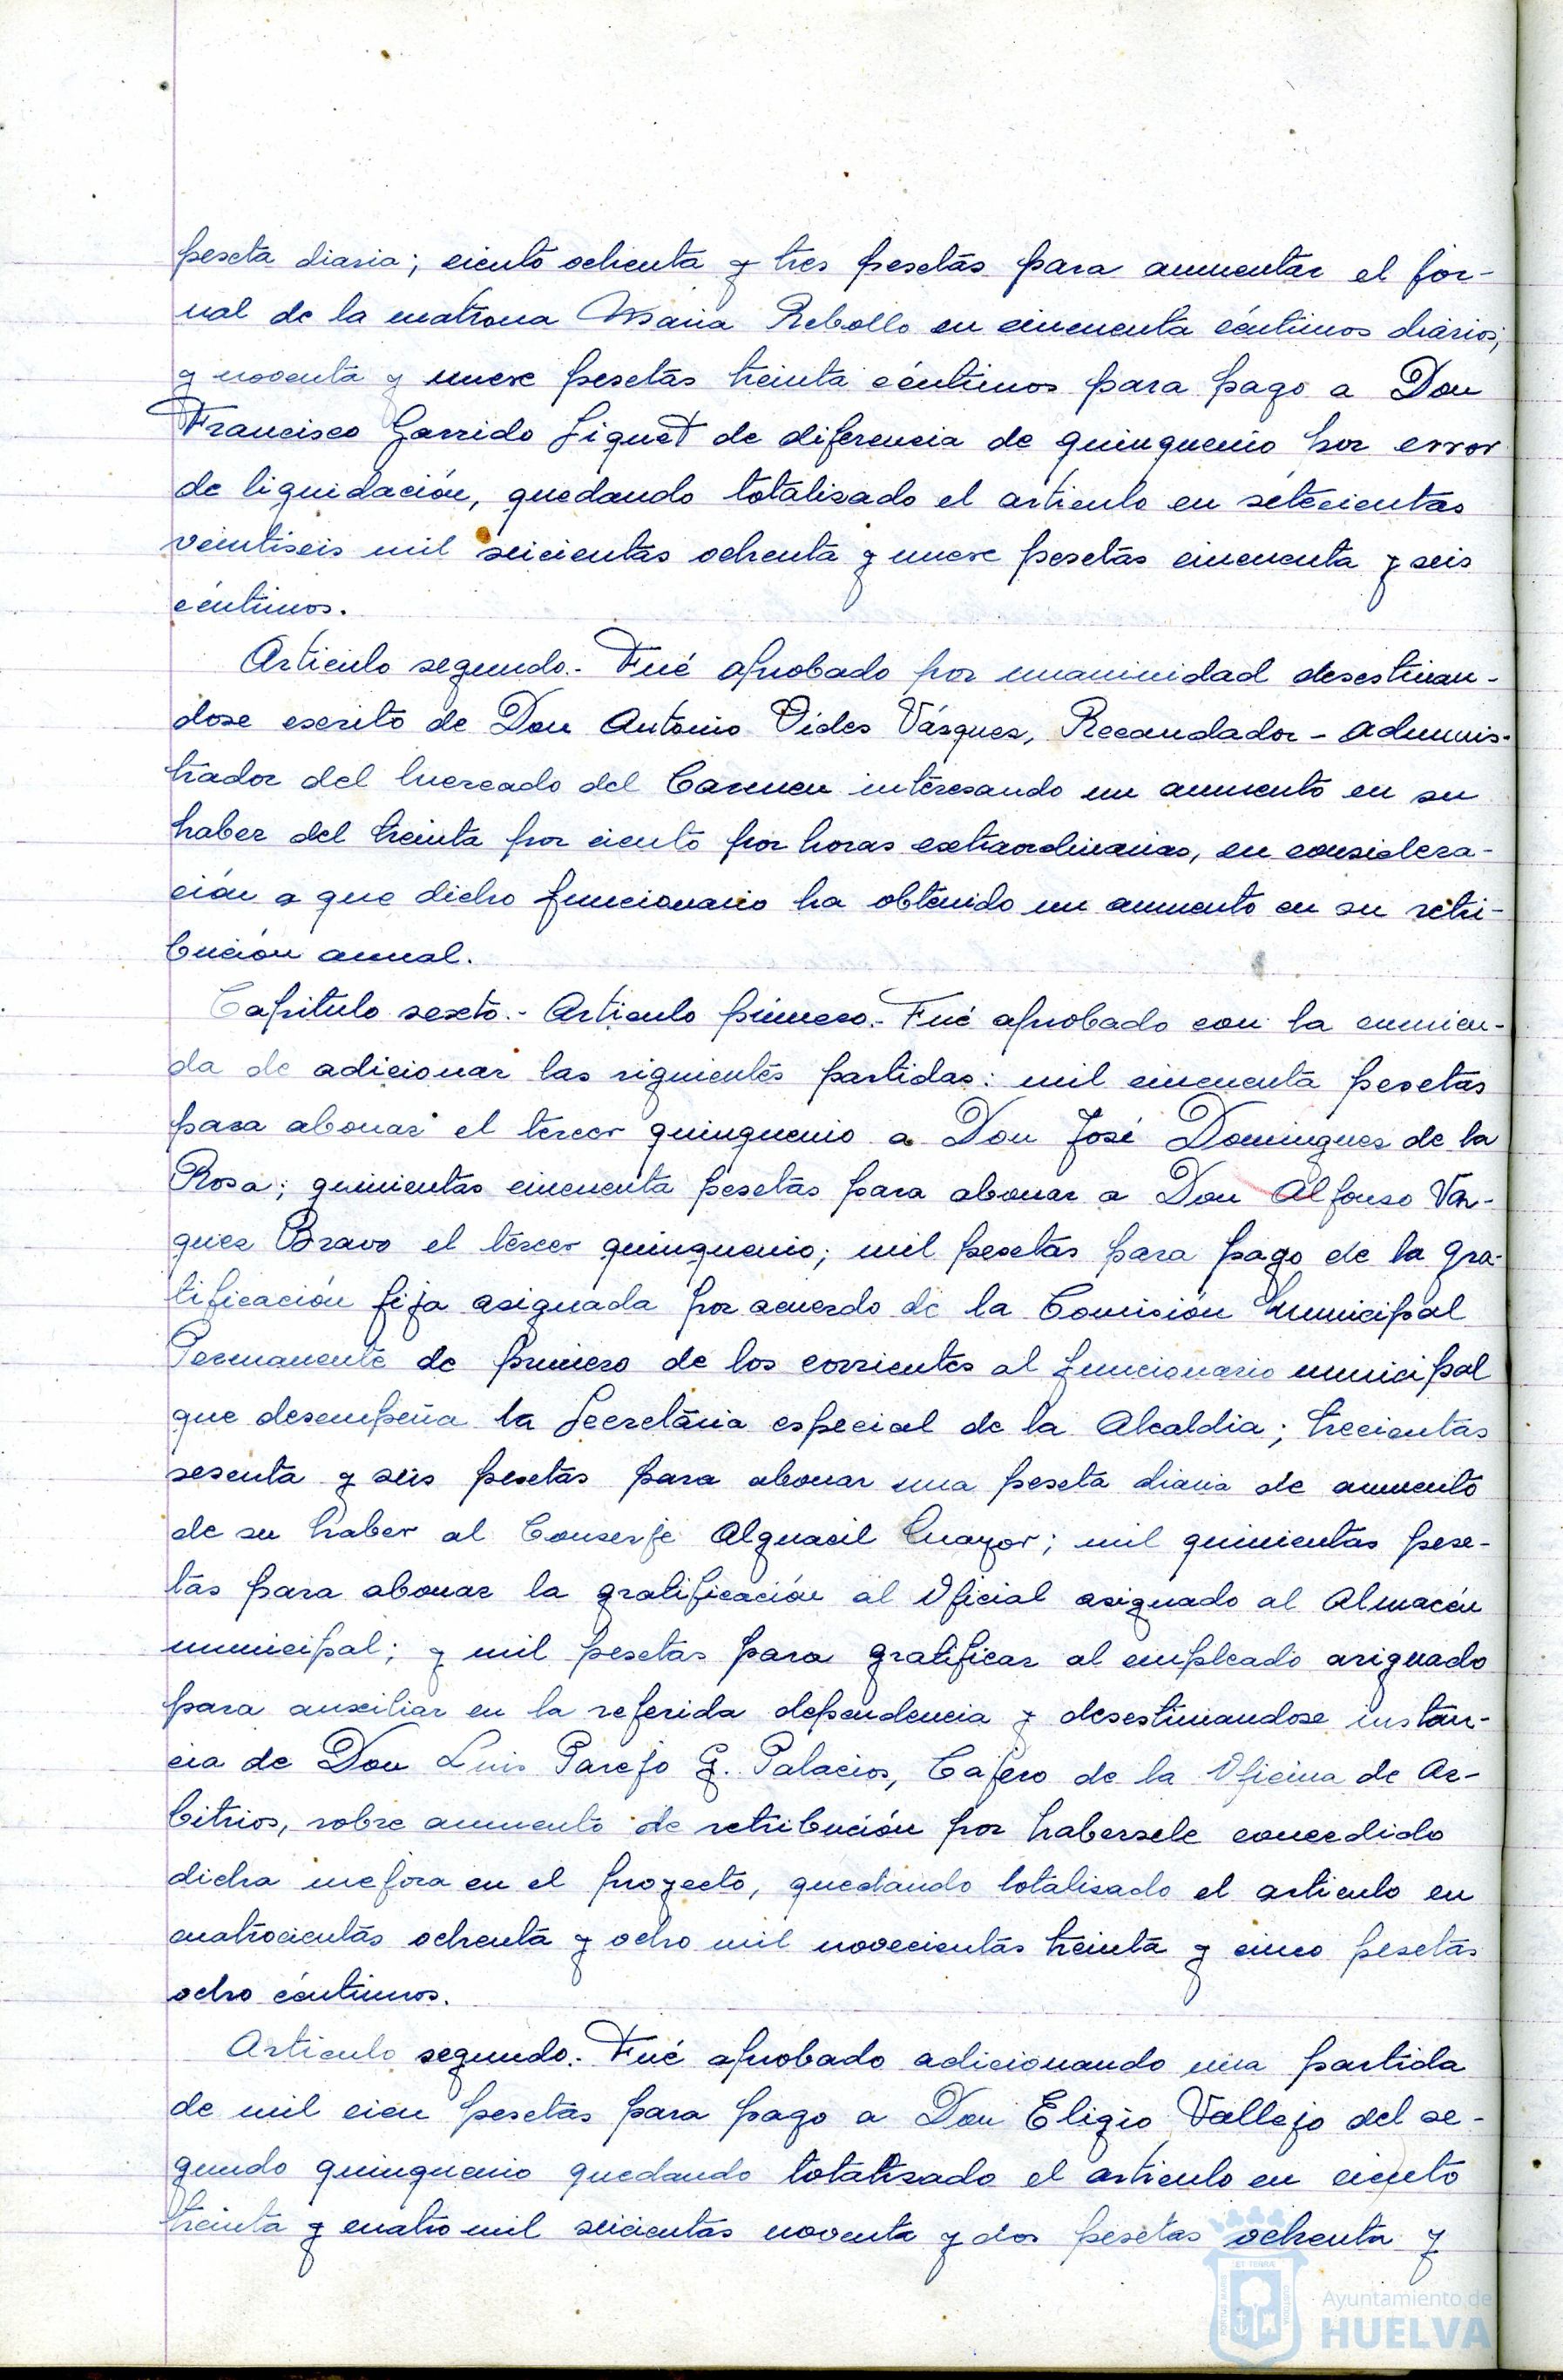 peseta diaria; ciento ochenta y tres pesetas para aumentar el jor-
nal de la matrona Maria Rebollo en cincuenta céntimos diarios;
y noventa y nueve pesetas treinta céntimos para pago a Don
Francisco Garrido Liquet de diferencia de quinquenio por error
de liquidación, quedando totalisado el artículo en setecientas
veintiseis mil seicientas ochenta y nueve pesetas cincuenta y seis
céntimos.
Artículo segundo.- Fué aprobado por unanimidad desestiman-
dose escrito de Don Antonio Vides Vásques, Recaudador - adminis-
trador del Mercado del Carmen interesando un aumento en su
haber del treinta por ciento por horas extraordinarias, en considera-
ción a que dicho funcionario ha obtenido un aumento en su retri-
bución annal.
Capitulo sexto.- Articulo primero.- Fué aprobado con la enmien-
da de adicionar las siguientes partidas: mil cincuenta pesetas
para abonar el tercer quinquenio a Don José Domingues de la
Rosa; quinientas cincuenta pesetas para abonar a Don Alfonso Vás-
ques Bravo el tércer quinquenio; mil pesetas para pago de la gra-
tificación fija asignada por acuerdo de la Comisión Municipal
Permanente de primero de los corrientes al funcionario municipal
que desempeña la Secretária especial de la Alcaldia; trecientas
sesenta y seis pesetas para abonar una peseta diaria de aumento
de su haber al Conserje Alguacil Mayor; mil quinientas pese-
tas para abonar la gratificación al Oficial asignado al Almacén
municipal; y mil pesetas para gratificar al empleado asignado
para auxiliar en la referida dependencia y desestimandose instan-
cia de Don Luis Parejo G. Palacios, Cajero de la Oficina de Ar-
bitrios, sobre aumento de retribución por habersele concedido
dicha mejora en el proyecto, quedando totalisado el articulo en
cuatrocientas ochenta y ocho mil novecientas treinta y cinco pesetas
ocho céntimos.
Articulo segundo. Fué aprobado adicionando una partida
de mil cien pesetas para pago a Don Eligio Vallejo del se-
gundo quinquenio quedando totalisado el artículo en ciento
treinta y cuatro mil seicientas noventa y dos pesetas ochenta y
Ayuntamiento de
HUELVA